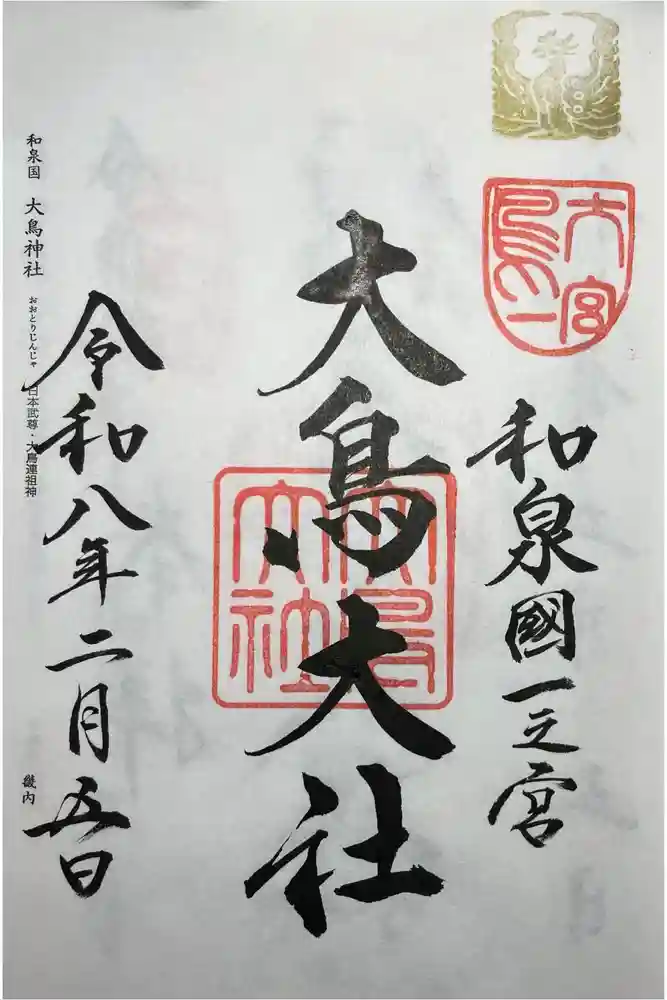 和泉國一之宮
大鳥一大宮
大鳥大社
大鳥大社
令和八年二月五日
和泉国 大鳥神社 おおとりじんじゃ 日本武尊・大鳥連祖神
畿内